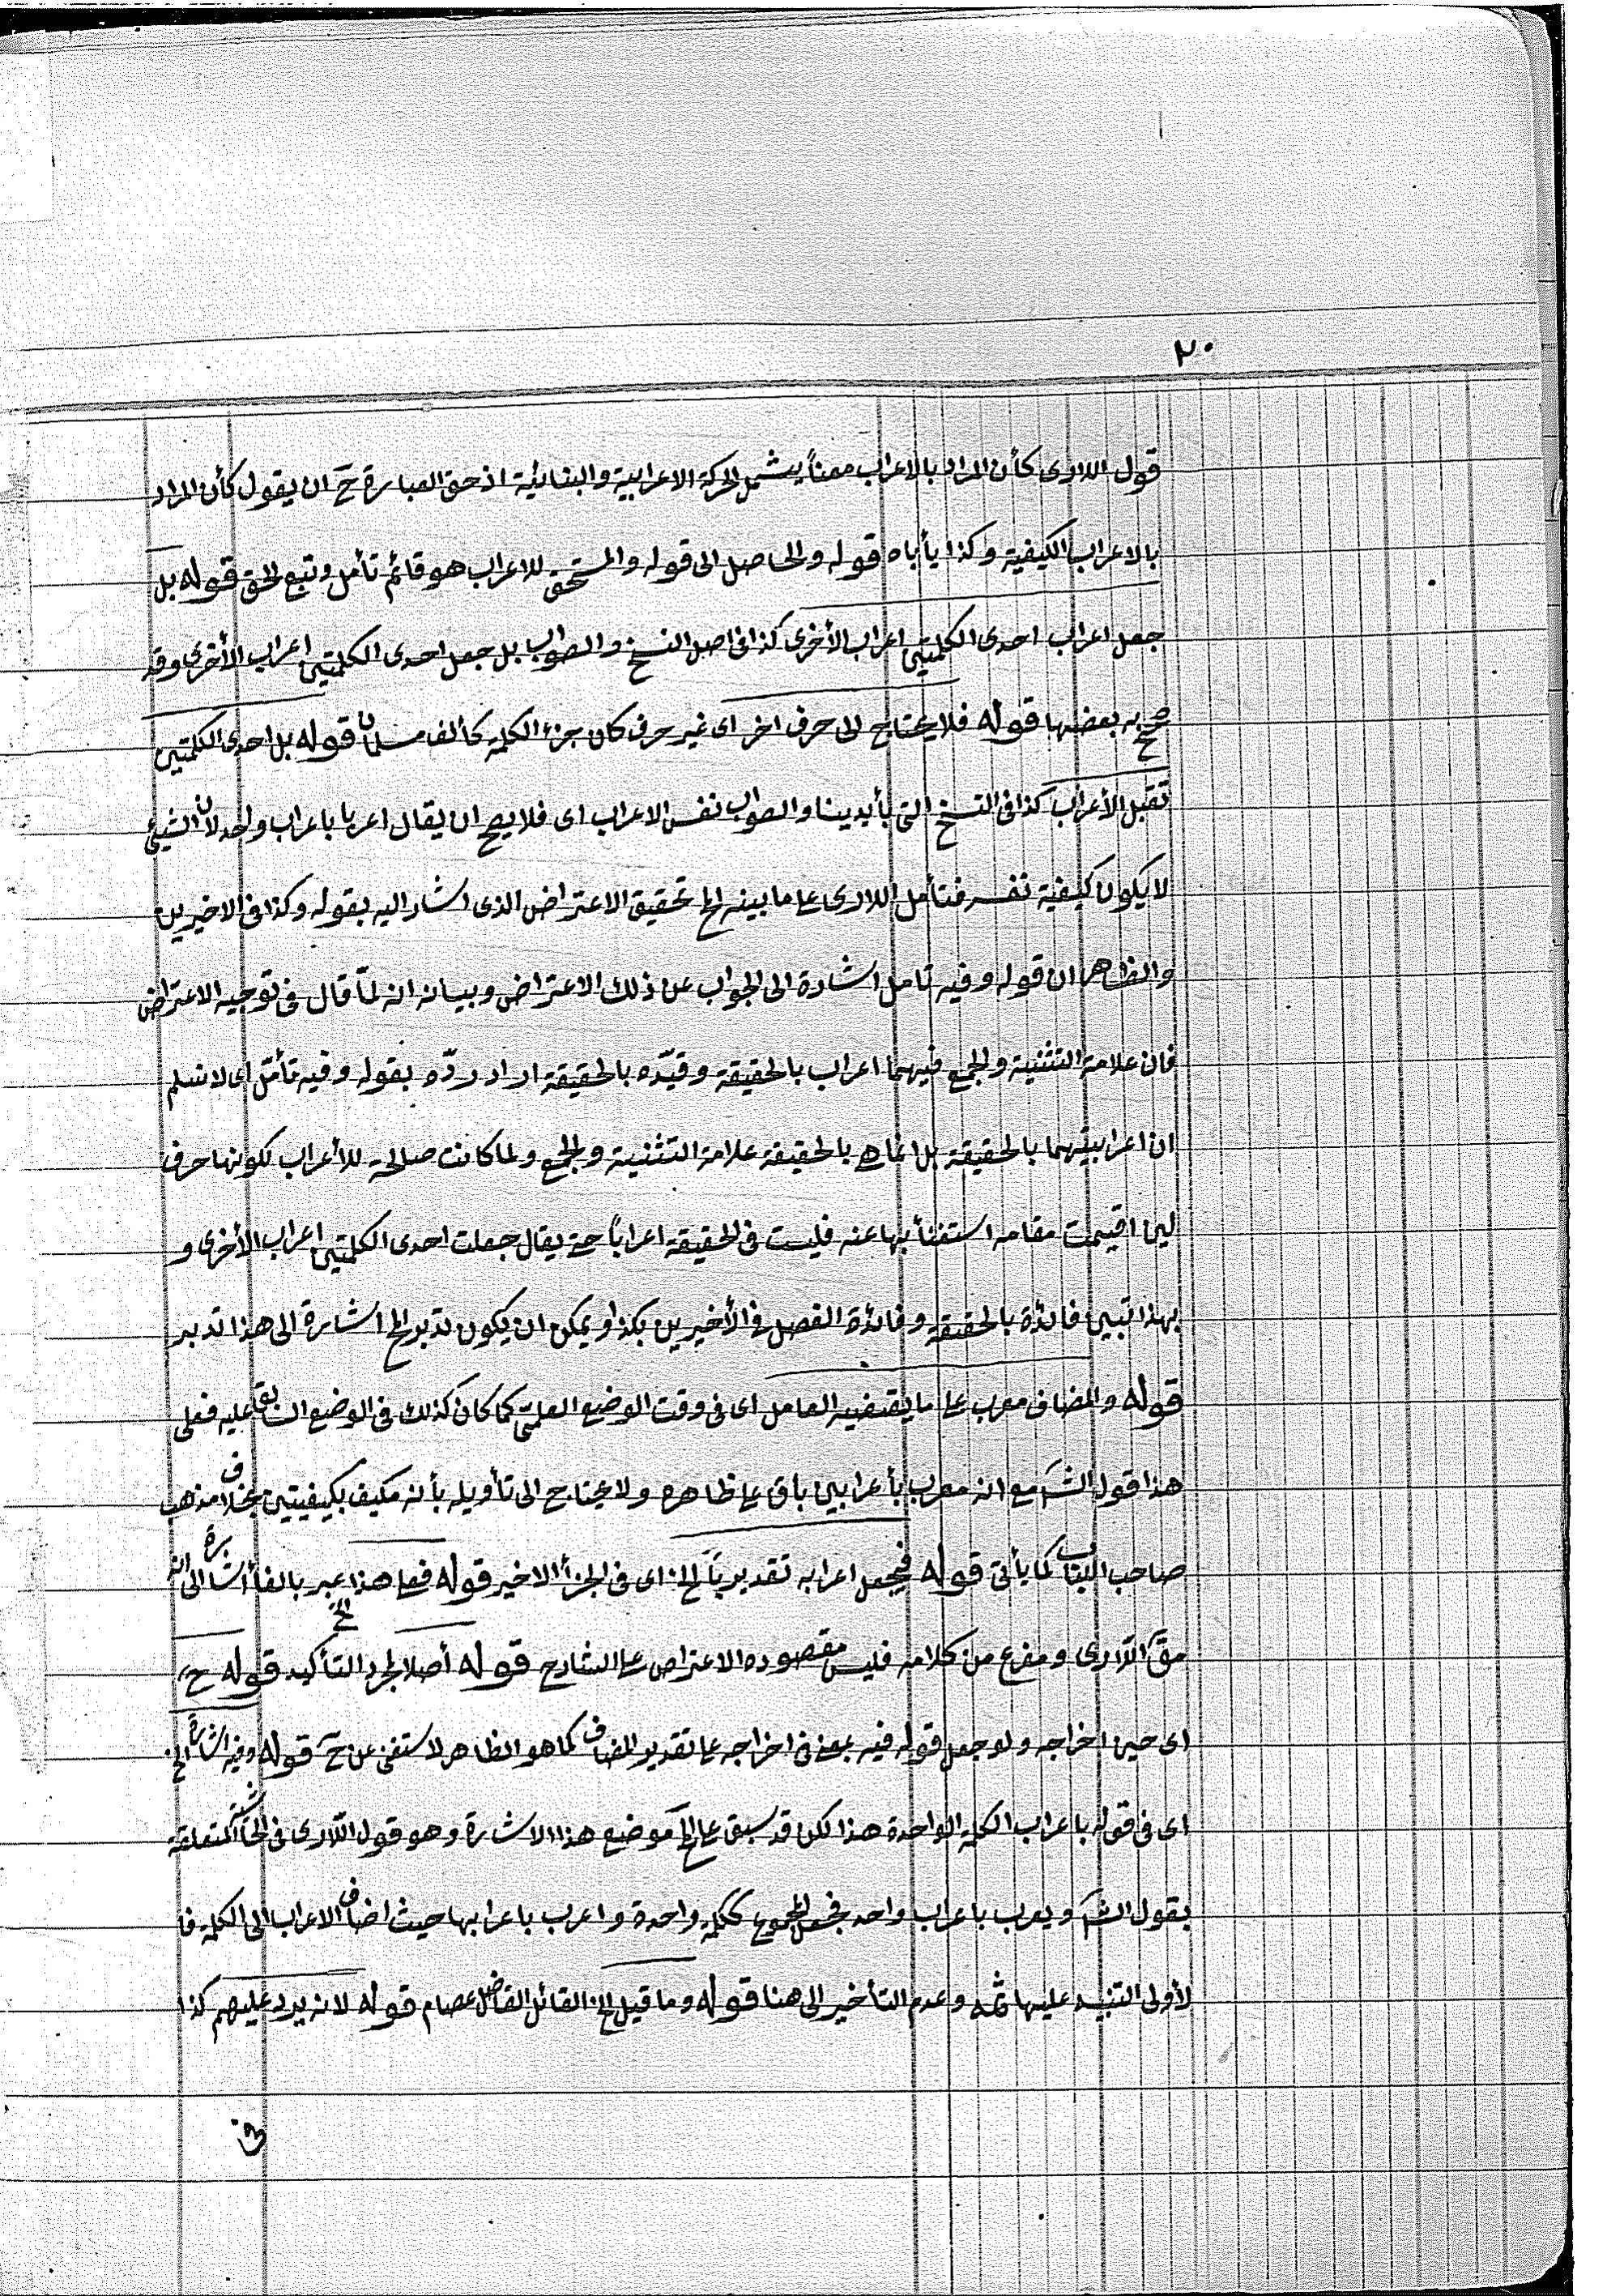 ٢٠
قول اللارى كأن المراد بالاعراب معناً يشمل الحركة الاعرابية والبنائية اذ حق العبارة ح ان يقول كأن المراد
بالاعراب الكيفية وكذا يأباه قوله والحاصل الى قوله والمستحق للاعراب هو قائم تأمل وتتبع لحق قوله بل
جعل اعراب احدى الكلمتين اعراب الأخرى كذا فى اصل النسخ والصواب بل جعل احدى الكلمتين اعراب الأخرى وقد
صحح به بعضها قوله فلا يحتاج الى حرف اخر اى غير حرف كان جزء الكلمة كألف مسلمان قوله بل احدى الكلمتين
تقبل الأعراب كذا فى النسخ التى بأيدينا والصواب نفس الاعراب اى فلا يصح ان يقال اعربا باعراب واحد لان الشيئ
لا يكون كيفية نفسه فتأمل اللارى على ما بينه الخ تحقيق الاعتراض الذى اشار اليه بقوله وكذا فى الاخيرين
والظاهر ان قوله وفيه تامل اشارة الى الجواب عن ذلك الاعتراض وبيانه انه لمّا قال فى توجيه الاعتراض
فان علامة التثنية والجمع فيهما اعراب بالحقيقة وقيّده بالحقيقة اراد ردّه بقوله وفيه تأمّل اى لا نسلم
ان اعرابيتهما بالحقيقة بل انما هى بالحقيقة علامة التثنية والجمع ولما كانت صالحة للأعراب لكونها حرف
لين اقيمت مقامه استغنأ بها عنه فليست فى الحقيقة اعراباً حتى يقال جعلت احدى الكلمتين اعراب الأخرى و
بهذا تبين فائدة بالحقيقة وفائدة الفصل فى الأخيرين بكذا ويمكن ان يكون تدبر الخ اشارة الى هذا تدبر
قوله والمضاف معرب على ما يقتضيه العامل اى فى وقت الوضع العلمى كما كان كذلك فى الوضع السابق عليه فعلى
هذا قول الش مع انه معرب بأعرابين باق على ظاهره ولا يحتاج الى تأويله بأنه مكيف بكيفيتين بخلاف مذهب
صاحب اللباب كما يأتى قوله فيجعل اعرابه تقديرياً الخ اى فى الجزأ الاخير قوله فعلى هذا الخ عبر بالفأ اشارة الى انه
مقَ اللّارى ومفرع من كلامه فليس مقصوده الاعتراض على الشارح قوله أصلا لمجرد التأكيد قوله ح
اى حين اخراجه ولو جعل قوله فيه بمعنى فى اخراجه على تقدير المضاف كما هو الظاهر لاستغنى عن ح قوله وفيه اشارة الخ
اى فى قوله باعراب الكلمة الواحدة هذا لكن قد سبق على الخ موضع هذا الاشارة وهو قول اللّارى فى الحاشية المتعلقة
بقول الش ويعرب باعراب واحد فجعل المجموع ككلمة واحدة واعرب باعرابها حيث اضاف الاعراب الى الكلمة فا
لأولى التنبيه عليها ثمه وعدم التأخير الى هنا قوله وما قيل الخ القائل الفاضل عصام قوله لانه يرد عليهم كذا
فى